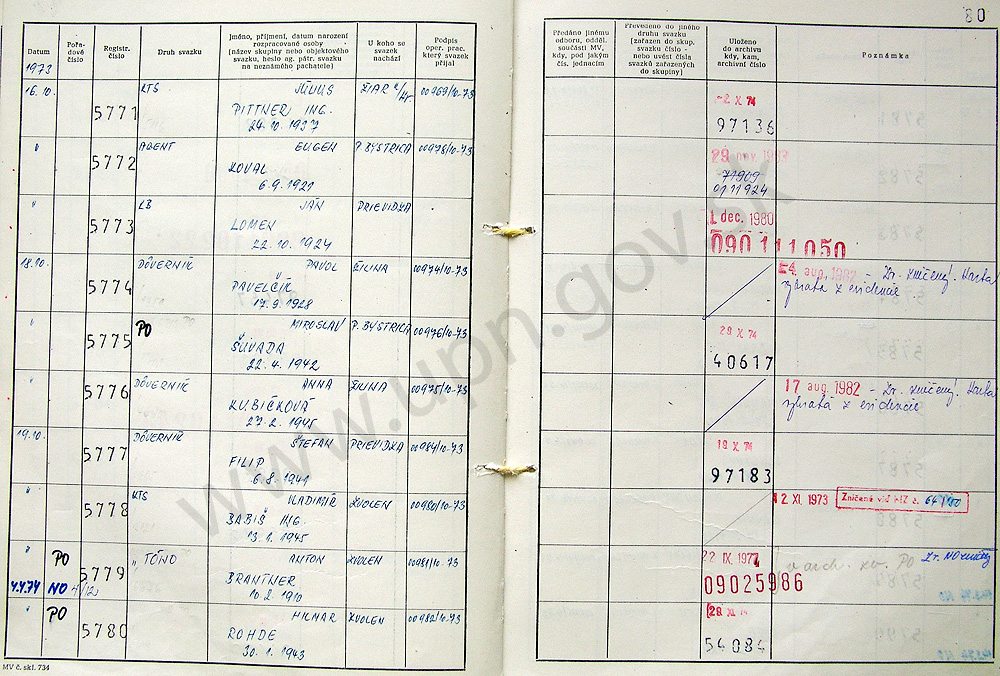 30
Datum
Pořadové číslo
Registr. číslo
Druh svazku
Jméno, příjmení, datum narození rozpracované osoby (název skupiny nebo objektového svazku, heslo ag. pátr. svazku na neznámého pachatele)
U koho se svazek nachází
Podpis oper. prac. který svazek přijal
Předáno jinému odboru, odděl. součásti MV, kdy, pod jakým čís. jednacím
Převedeno do jiného druhu svazku (zařazen do skup. svazku číslo - nebo uvést čísla svazků zařazených do skupiny)
Uloženo do archivu kdy, kam, archivní číslo
Poznámka
1973
16.10. 5771 KTS JÚLIUS ŽIAR 00969/10-73 -2 X 74
PITTNER ING. 97136
24.10.1937
" 5772 AGENT EUGEN P. BYSTRICA 00978/10-73 29
KOVAL 71909
6.9.1921 0111924
" 5773 KB JÁN PRIEVIDZA 1 dec. 1980
LOMEN 090111050
22.10.1924
18.10. 5774 DÔVERNÍK PAVOL ŽILINA 00974/10-73 aug. 1982 - Zv. zničený! Karta
PAVELČÍK vybratá z evidencie
17.9.1928
" 5775 PO MIROSLAV P. BYSTRICA 00976/10-73 X 74
ŠUVADA 40617
22.4.1942
" 5776 DÔVERNÍK ANNA ŽILINA 00975/10-73 17 aug. 1982 - Zv. zničený! Karta
KUBIČKOVÁ vybratá z evidencie
27.2.1945
19.10. 5777 DÔVERNÍK ŠTEFAN PRIEVIDZA 00984/10-73 X 74
FILIP 97183
6.8.1941
" 5778 KTS VLADIMÍR ZVOLEN 00980/10-73 12. XI. 1973 Zničené viď HZ č. 64/80
BABIŠ ING.
13.1.1945
" PO 5779 "TÓNO ANTON ZVOLEN 00981/10-73 22 IX. 1977 v arch. zv. PO
4.4.74 NO BRANTNER 09025986
10.2.1910
" PO 5780 HILMAR ZVOLEN 00982/10-73
ROHDE 54084
30.1.1943
MV č. skl. 734
www.upn.gov.sk